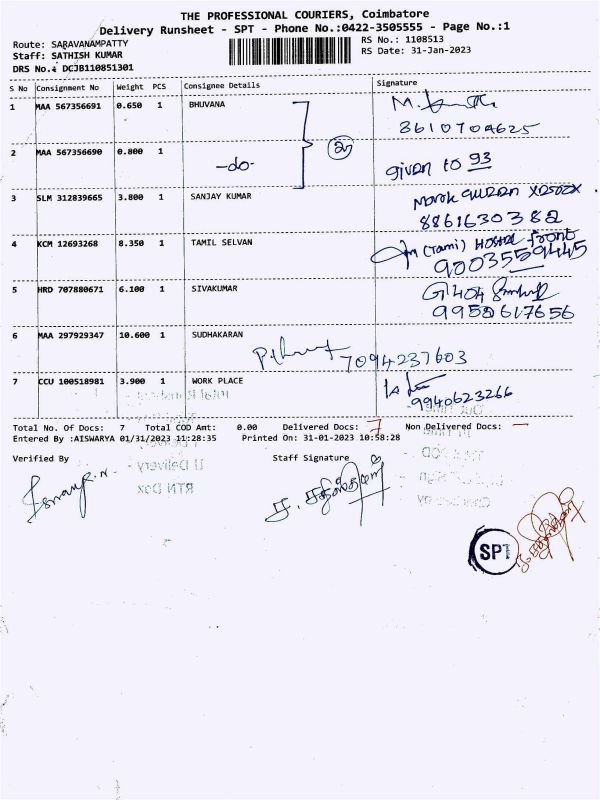 THE PROFESSIONAL COURIERS, Coimbatore
Delivery Runsheet - SPT - Phone No.:0422-3505555 - Page No.:1
Route: SARAVANAMPATTY
RS No.: 1108513
Staff: SATHISH KUMAR
RS Date: 31-Jan-2023
DRS No.: DCJB110851301
S No Consignment No Weight PCS Consignee Details Signature
1 MAA 567356691 0.650 1 BHUVANA
8610704625
2 MAA 567356690 0.800 1 -do- given to 93
3 SLM 312839665 3.800 1 SANJAY KUMAR
8861630382
4 KCM 12693268 8.350 1 TAMIL SELVAN (Tami) HOSTEL front
9003559445
5 HRD 707880671 6.100 1 SIVAKUMAR G1404
9952617656
6 MAA 297929347 10.600 1 SUDHAKARAN
7094237603
7 CCU 100518981 3.900 1 WORK PLACE
9940623266
Total No. Of Docs: 7 Total COD Amt: 0.00 Delivered Docs: 7 Non Delivered Docs: —
Entered By :AISWARYA 01/31/2023 11:28:35 Printed On: 31-01-2023 10:58:28
Verified By Staff Signature
SPT